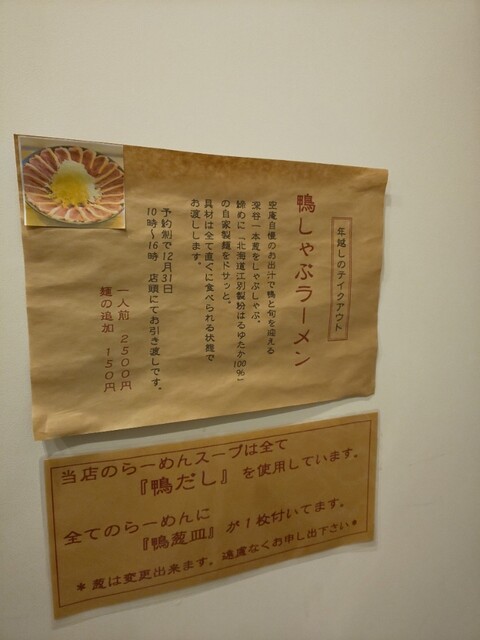 年越しのテイクアウト
鴨しゃぶラーメン
空庵自慢のお出汁で鴨と旬を迎える
深谷一本葱をしゃぶしゃぶ。
締めに「北海道江別製粉はるゆたか100%」
の自家製麺をドサッと。
具材は全て直ぐに食べられる状態で
お渡しします。
予約制で12月31日
10時〜16時 店頭にてお引き渡しです。
一人前 2500円
麺の追加 150円
当店のらーめんスープは全て
『鴨だし』を使用しています。
全てのらーめんに
『鴨葱皿』が1枚付いてます。
*葱は変更出来ます。遠慮なくお申し出下さい*